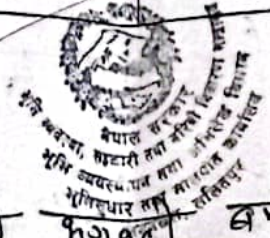 नेपाल सरकार
भूमि व्यवस्था, सहकारी तथा गरिबी निवारण मन्त्रालय
भूमि व्यवस्थापन तथा अभिलेख विभाग
भूमिसुधार तथा मालपोत कार्यालय
ललितपुर